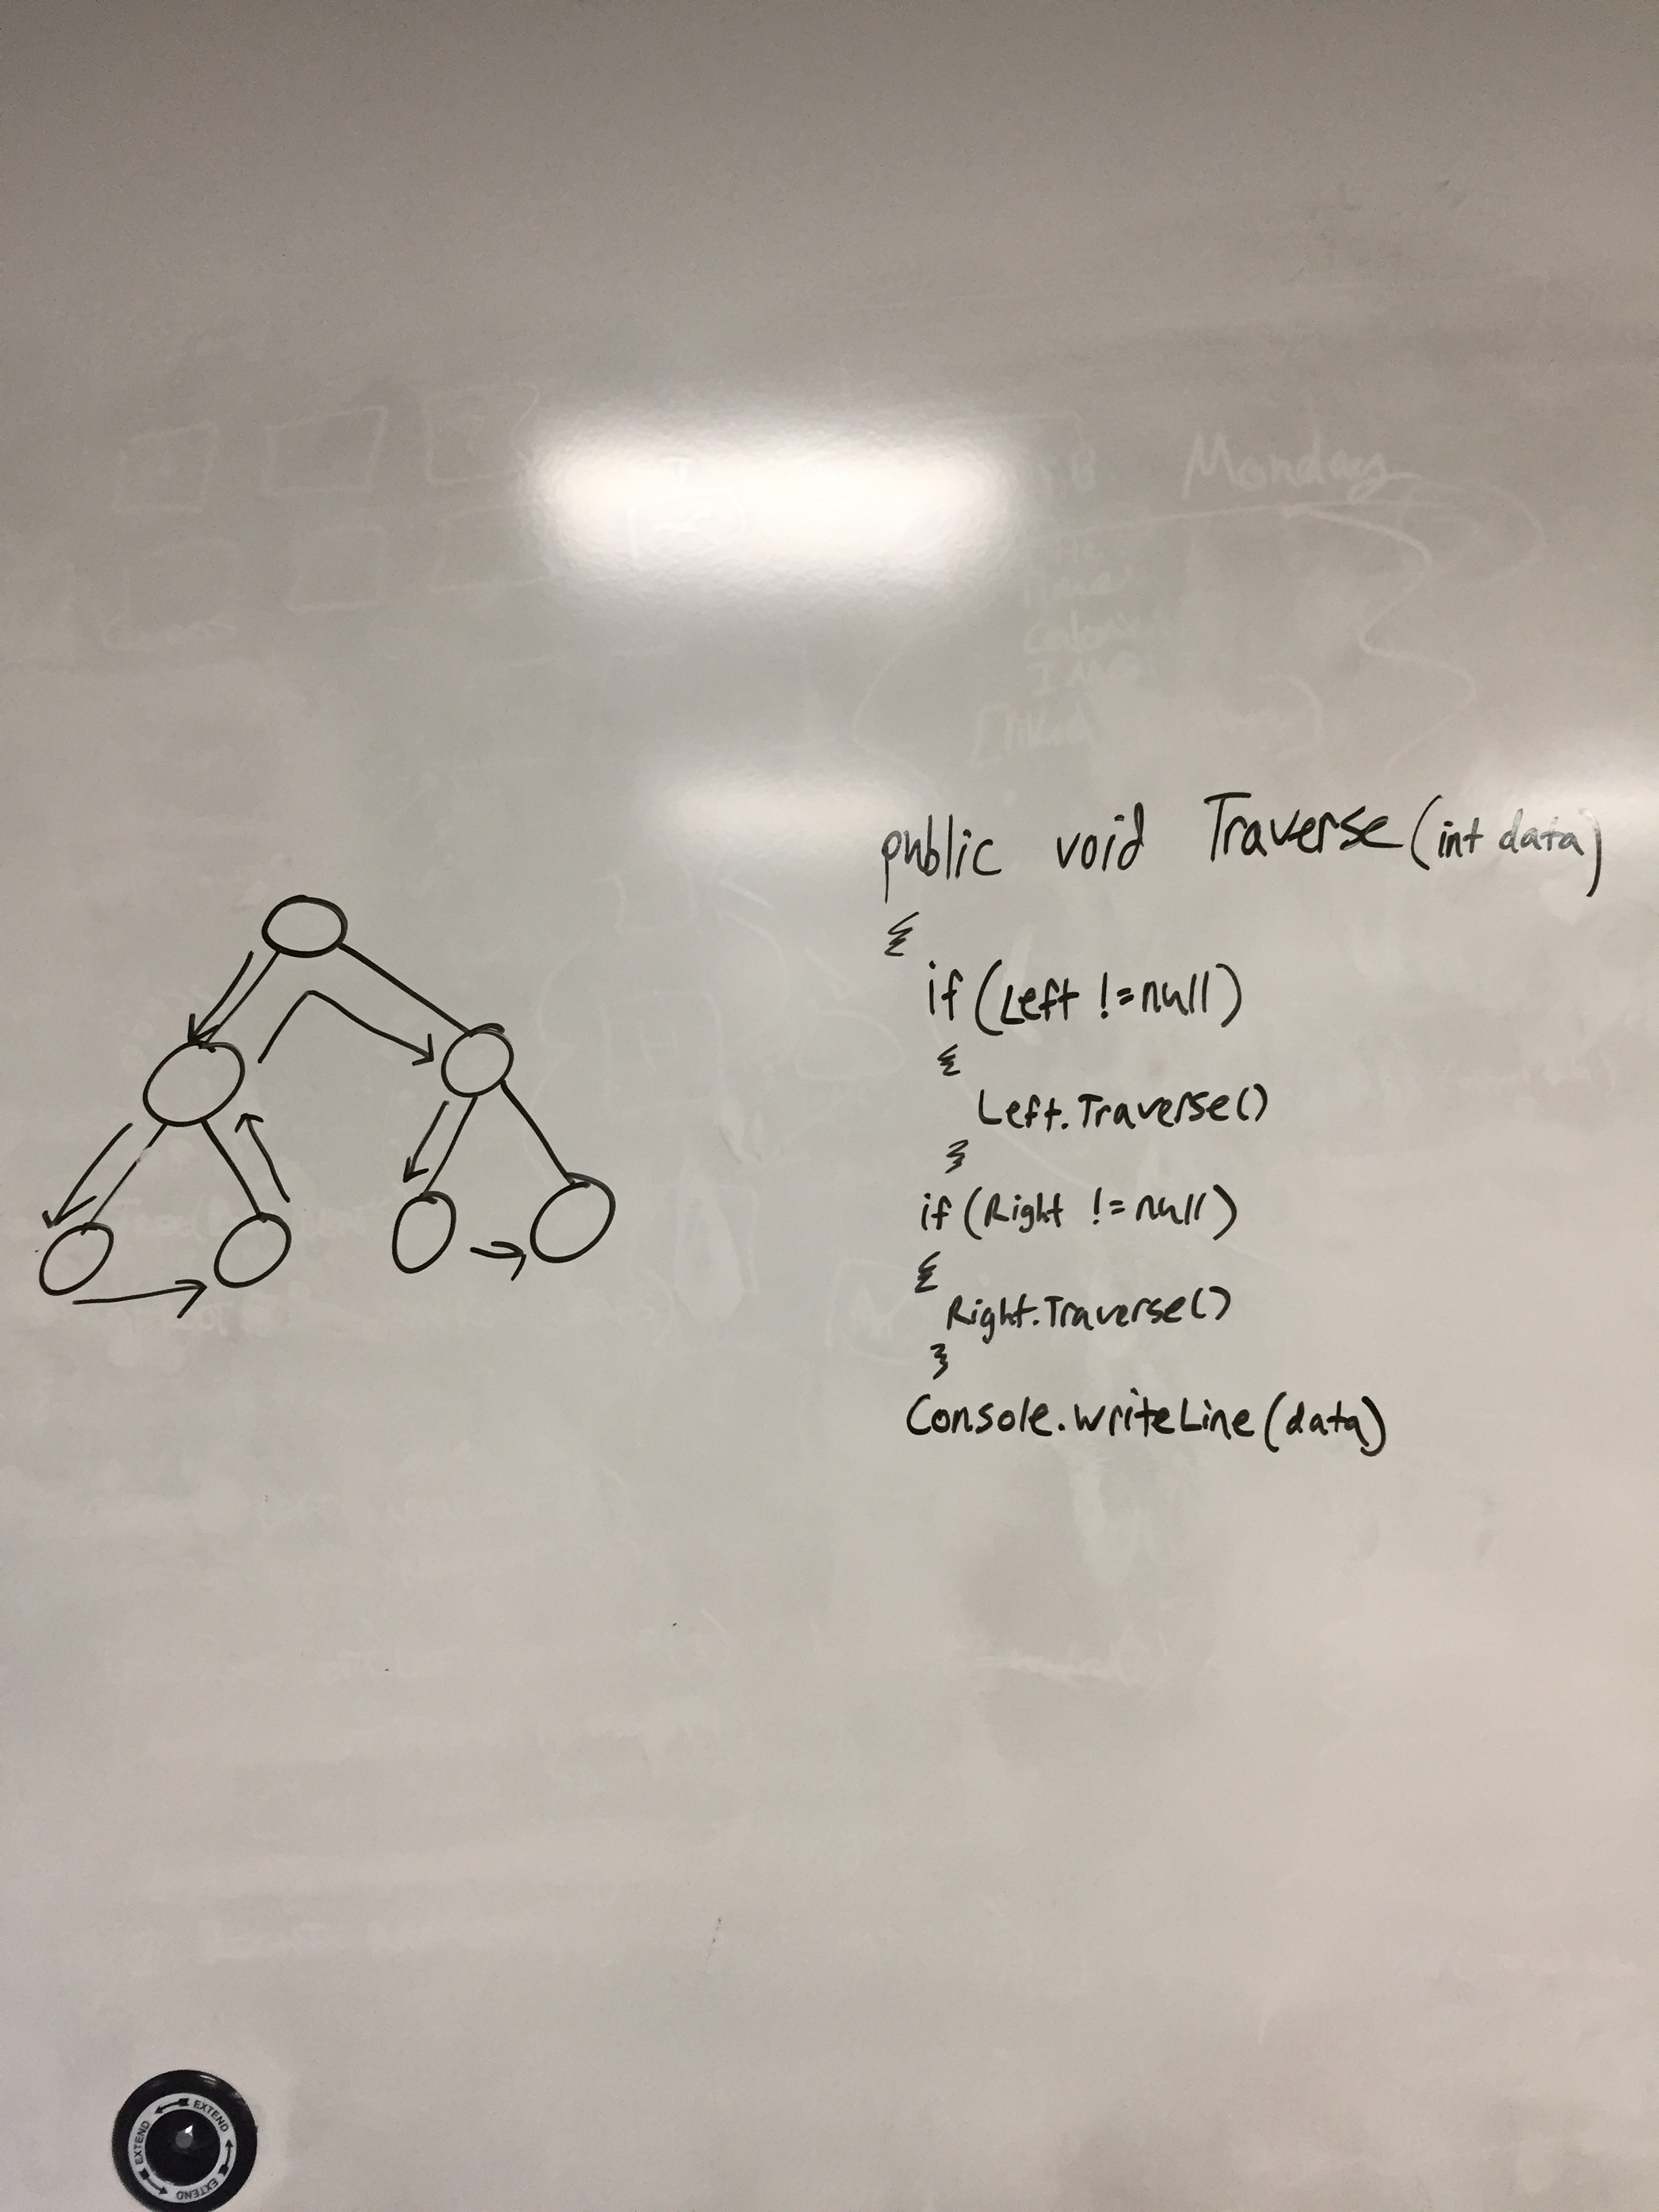 Monday
Guess
public void Traverse(int data)
{
if (Left !=null)
{
Left.Traverse()
}
if (Right !=null)
{
Right.Traverse()
}
Console.WriteLine(data)
EXTEND
EXTEND
EXTEND
EXTEND